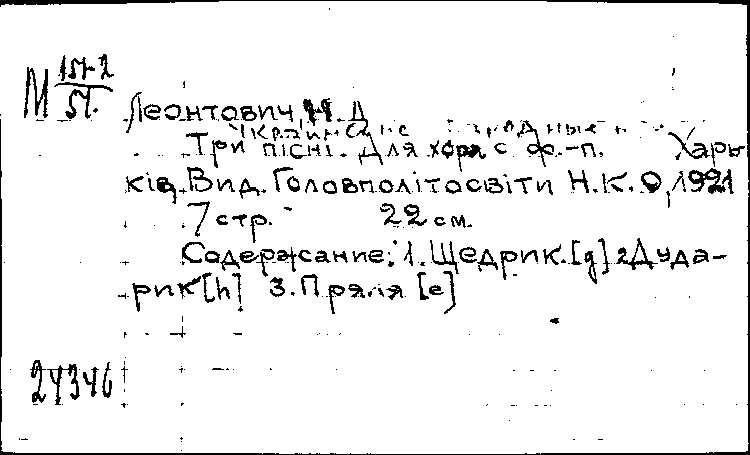 М 151-2
51.
Леонтович, Н. Д
Українські народные
Три пісні. Для хора с ф.-п. Харь
ків, Вид. Головполітосвіти Н.К.О, 1921
7 стр. 22 см.
Содержание: 1. Щедрик. [g] 2 Дуда-
рик [h] 3. Пряля [e]
24346